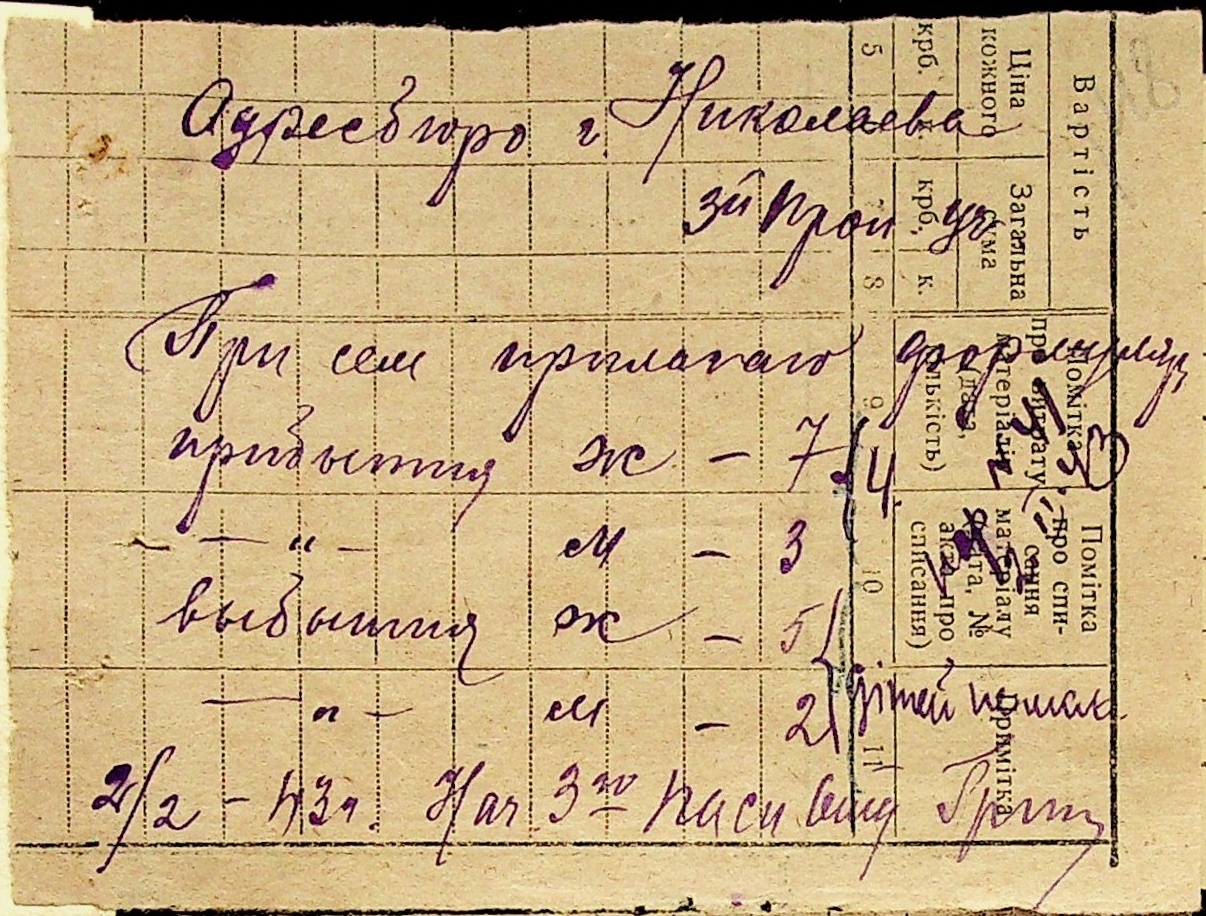 Адресбюро г. Николаева
3й
При сем прилагаю формуляр
прибытия ж – 7
– " – м – 3
4
выбытия ж – 5
– " – м – 2
дітей немає
2/2 – 43 г. Нач 3го
Вартість
Ціна кожного
крб. к.
5
Загальна сума
крб. к.
8
Помітка про витрату матеріалів (дата, кількість)
9
Помітка про спи-
сання
матеріалу
(дата, №
акта про
списання)
10
Примітка
11